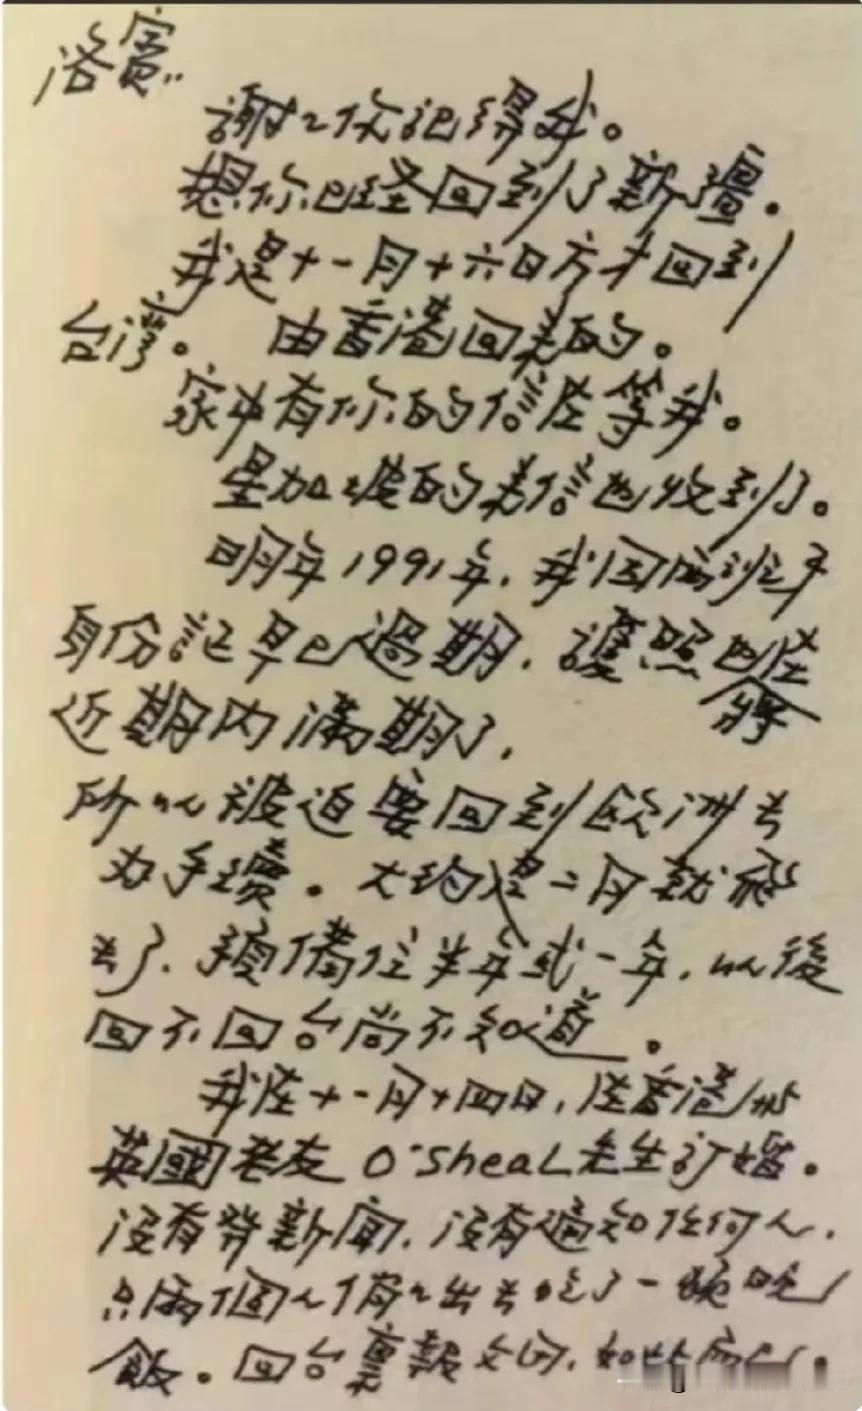 洛賓:
謝々你記得我。
想你已經回到了新疆。
我是十一月十六日方才回到
台灣。 由香港回來的。
家中有你的信在等我。
星加坡的來信也收到了。
明年1991年,我因西班牙
身份証早已過期,護照已在
將
近期內滿期了,
所以被迫要回到歐洲去
办手續。大約是二月就
去了,預備住半年或一年,以後
回不回台尚不知道。
我在十一月十四日,在香港與
英國老友 O'Sheal先生訂婚。
沒有發新聞,沒有通知任何人,
只兩個人俏々出去吃了一頓晚
飯。回台稟報父母,如此而已。